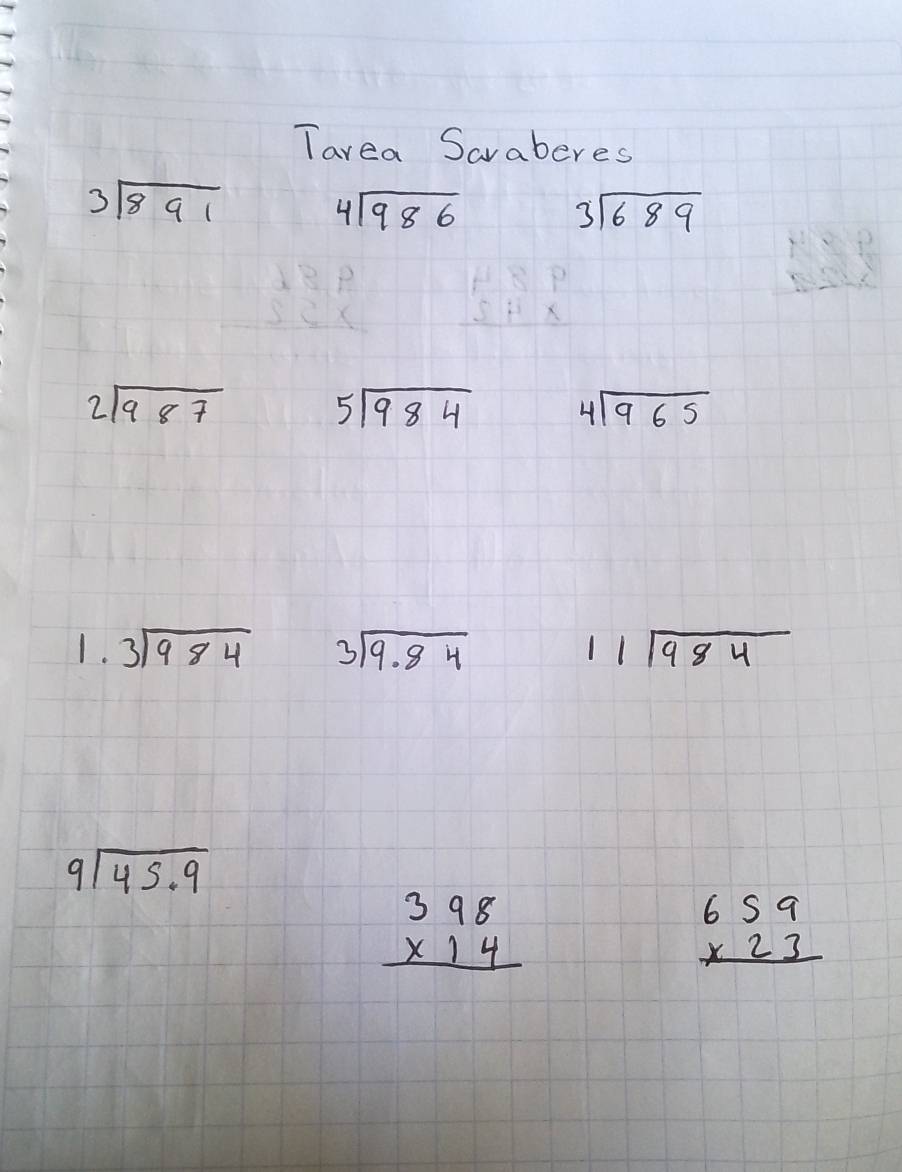 Tarea Saraberes
3|891 4|986 3|689
2|987 5|984 4|965
1.3|984 3|9.84 11|984
9|45.9
398 659
x14 x23